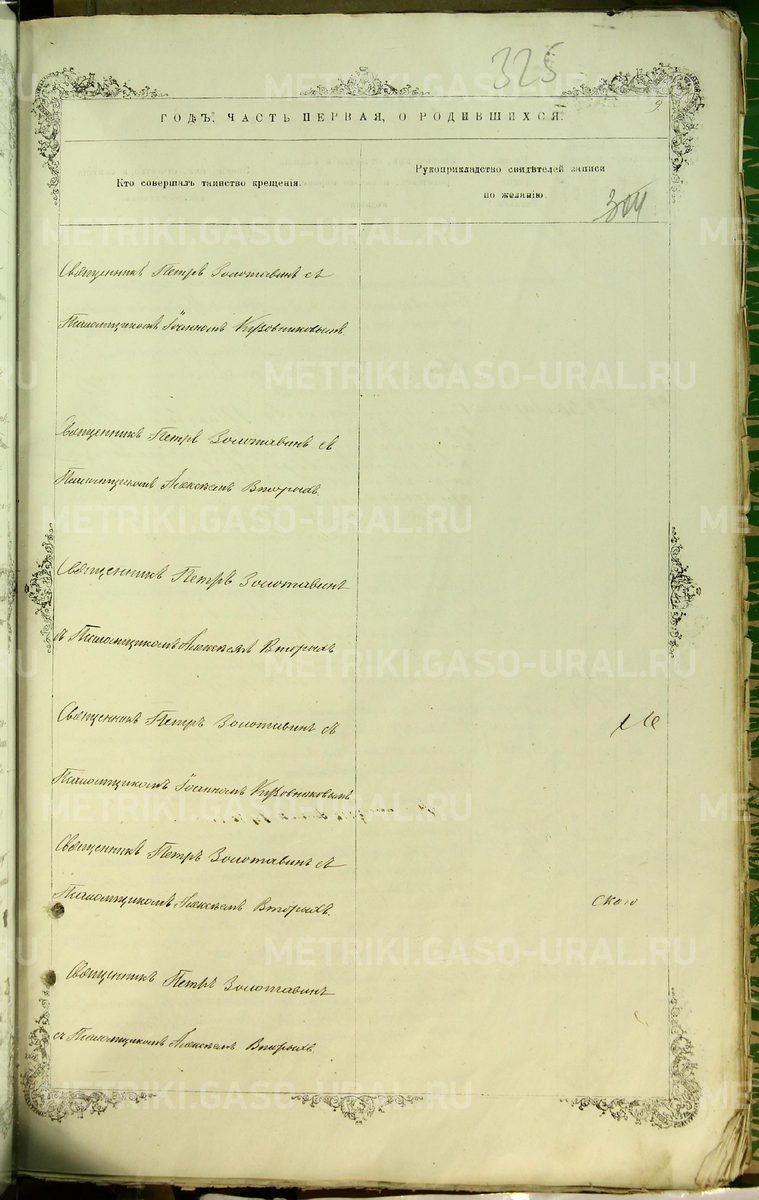 325
9
ГОДЪ. ЧАСТЬ ПЕРВАЯ, О РОДИВШИХСЯ.
Кто совершалъ таинство крещенія.
Рукоприкладство свидѣтелей записи
по желанію.
Священникъ Петръ Золотавинъ съ
Псаломщикомъ Іоанномъ
Священникъ Петръ Золотавинъ съ
Псаломщикомъ Алексѣемъ Вторыхъ
Священникъ Петръ Золотавинъ
съ Псаломщикомъ Алексѣемъ Вторыхъ
Священникъ Петръ Золотавинъ съ
Псаломщикомъ Іоанномъ
Священникъ Петръ Золотавинъ съ
Псаломщикомъ Алексѣемъ Вторыхъ.
скаго
Священникъ Петръ Золотавинъ
съ Псаломщикомъ Алексѣемъ Вторыхъ
METRIKI.GASO-URAL.RU